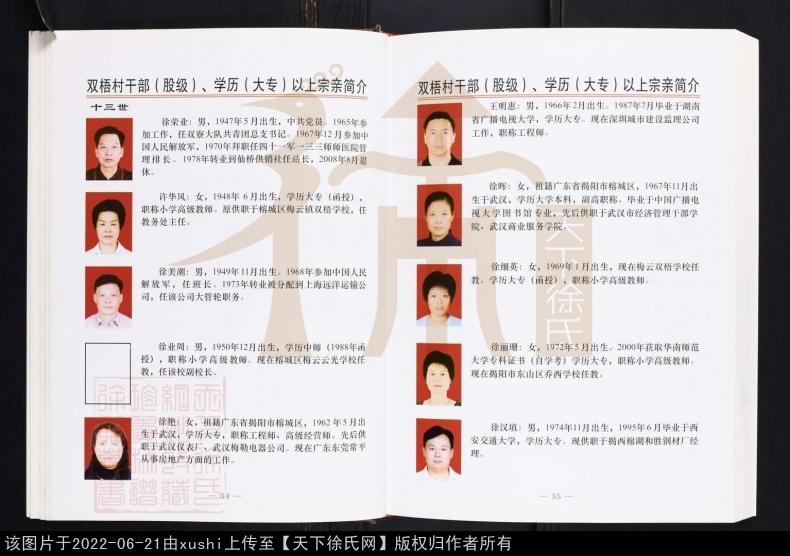 双梧村干部（股级）、学历（大专）以上宗亲简介
十三世
徐荣业：男，1947年5月出生，中共党员。1965年参
加工作，任双寮大队共青团总支书记。1967年12月参加中
国人民解放军，1970年拜职任四十一军一三三师师医院管
理排长。1978年转业到仙桥供销社任站长，2008年8月退
休。
许华凤：女，1948年6月出生，学历大专（函授），
职称小学高级教师。原供职于榕城区梅云镇双梧学校，任
教务处主任。
徐美潮：男，1949年11月出生。1968年参加中国人民
解放军，任班长。1973年转业被分配到上海远洋运输公
司，任该公司大管轮职务。
徐业周：男，1950年12月出生，学历中师（1988年函
授），职称小学高级教师。现在榕城区梅云云光学校任
教，任该校副校长。
徐艳：女，祖籍广东省揭阳市榕城区，1962年5月出
生于武汉，学历大专，职称工程师、高级经营师。先后供
职于武汉仪表厂、武汉梅勒电器公司。现在广东东莞常平
从事房地产方面的工作。
— 54 —
双梧村干部（股级）、学历（大专）以上宗亲简介
王明惠：男，1966年2月出生。1987年7月毕业于湖南
省广播电视大学，学历大专。现在深圳城市建设监理公司
工作，职称工程师。
徐晖：女，祖籍广东省揭阳市榕城区，1967年11月出
生于武汉，学历大学本科，副高职称。毕业于中国广播电
视大学图书馆专业，先后供职于武汉市经济管理干部学
院、武汉商业服务学院。
徐细英：女，1969年1月出生，现在梅云双梧学校任
教。学历大专（函授），职称小学高级教师。
徐丽珊：女，1972年5月出生。2000年获取华南师范
大学专科证书（自学考）学历大专，职称小学高级教师。
现在揭阳市东山区乔西学校任教。
徐汉填：男，1974年11月出生，1995年6月毕业于西
安交通大学，学历大专。现供职于揭西棉湖和胜钢材厂经
理。
— 55 —
天下徐氏
该图片于2022-06-21由xushi上传至【天下徐氏网】版权归作者所有